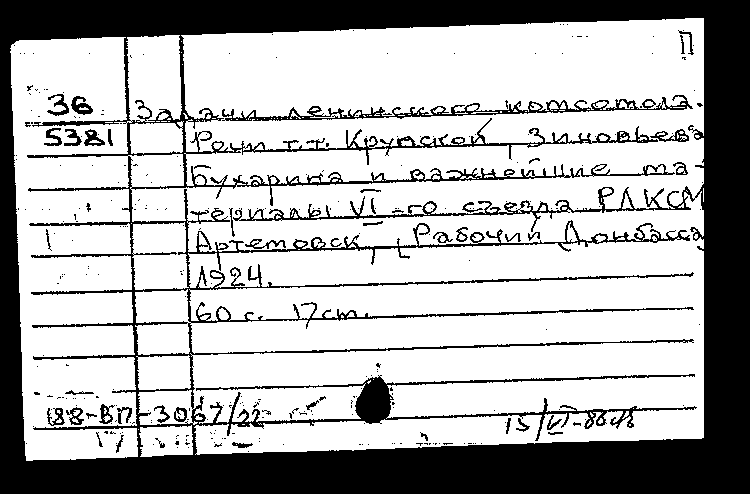 П
36
5381
Задачи ленинского комсомола.
Речи т.т. Крупской, Зиновьева
Бухарина и важнейшие ма-
териалы VI-го съезда РЛКСМ
Артемовск, [Рабочий Донбасса
1924.
60 с. 17см.
88-ВП-3067/22
15/VI-88